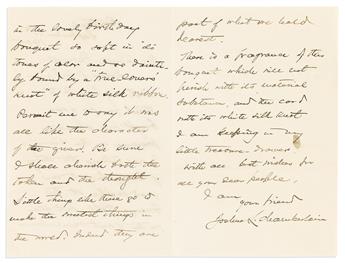 in the lovely birthday
bouquet so soft in its
tones of color and so dainti-
ly bound by a "true lovers'
knot" of white silk ribbon.
Permit me to say it was
all like the character
of the giver. Be sure
I shall cherish both the
token and the thought.
Little things like these go to
make the sweetest things in
the world. Indeed they are
part of what we hold
dearest.
There is a fragrance of this
bouquet which will not
perish with its material
substance, and the card
with its white silk knot
I am keeping in my
little treasure-drawer
with all best wishes for
all your dear people.
I am
your friend
Joshua L. Chamberlain